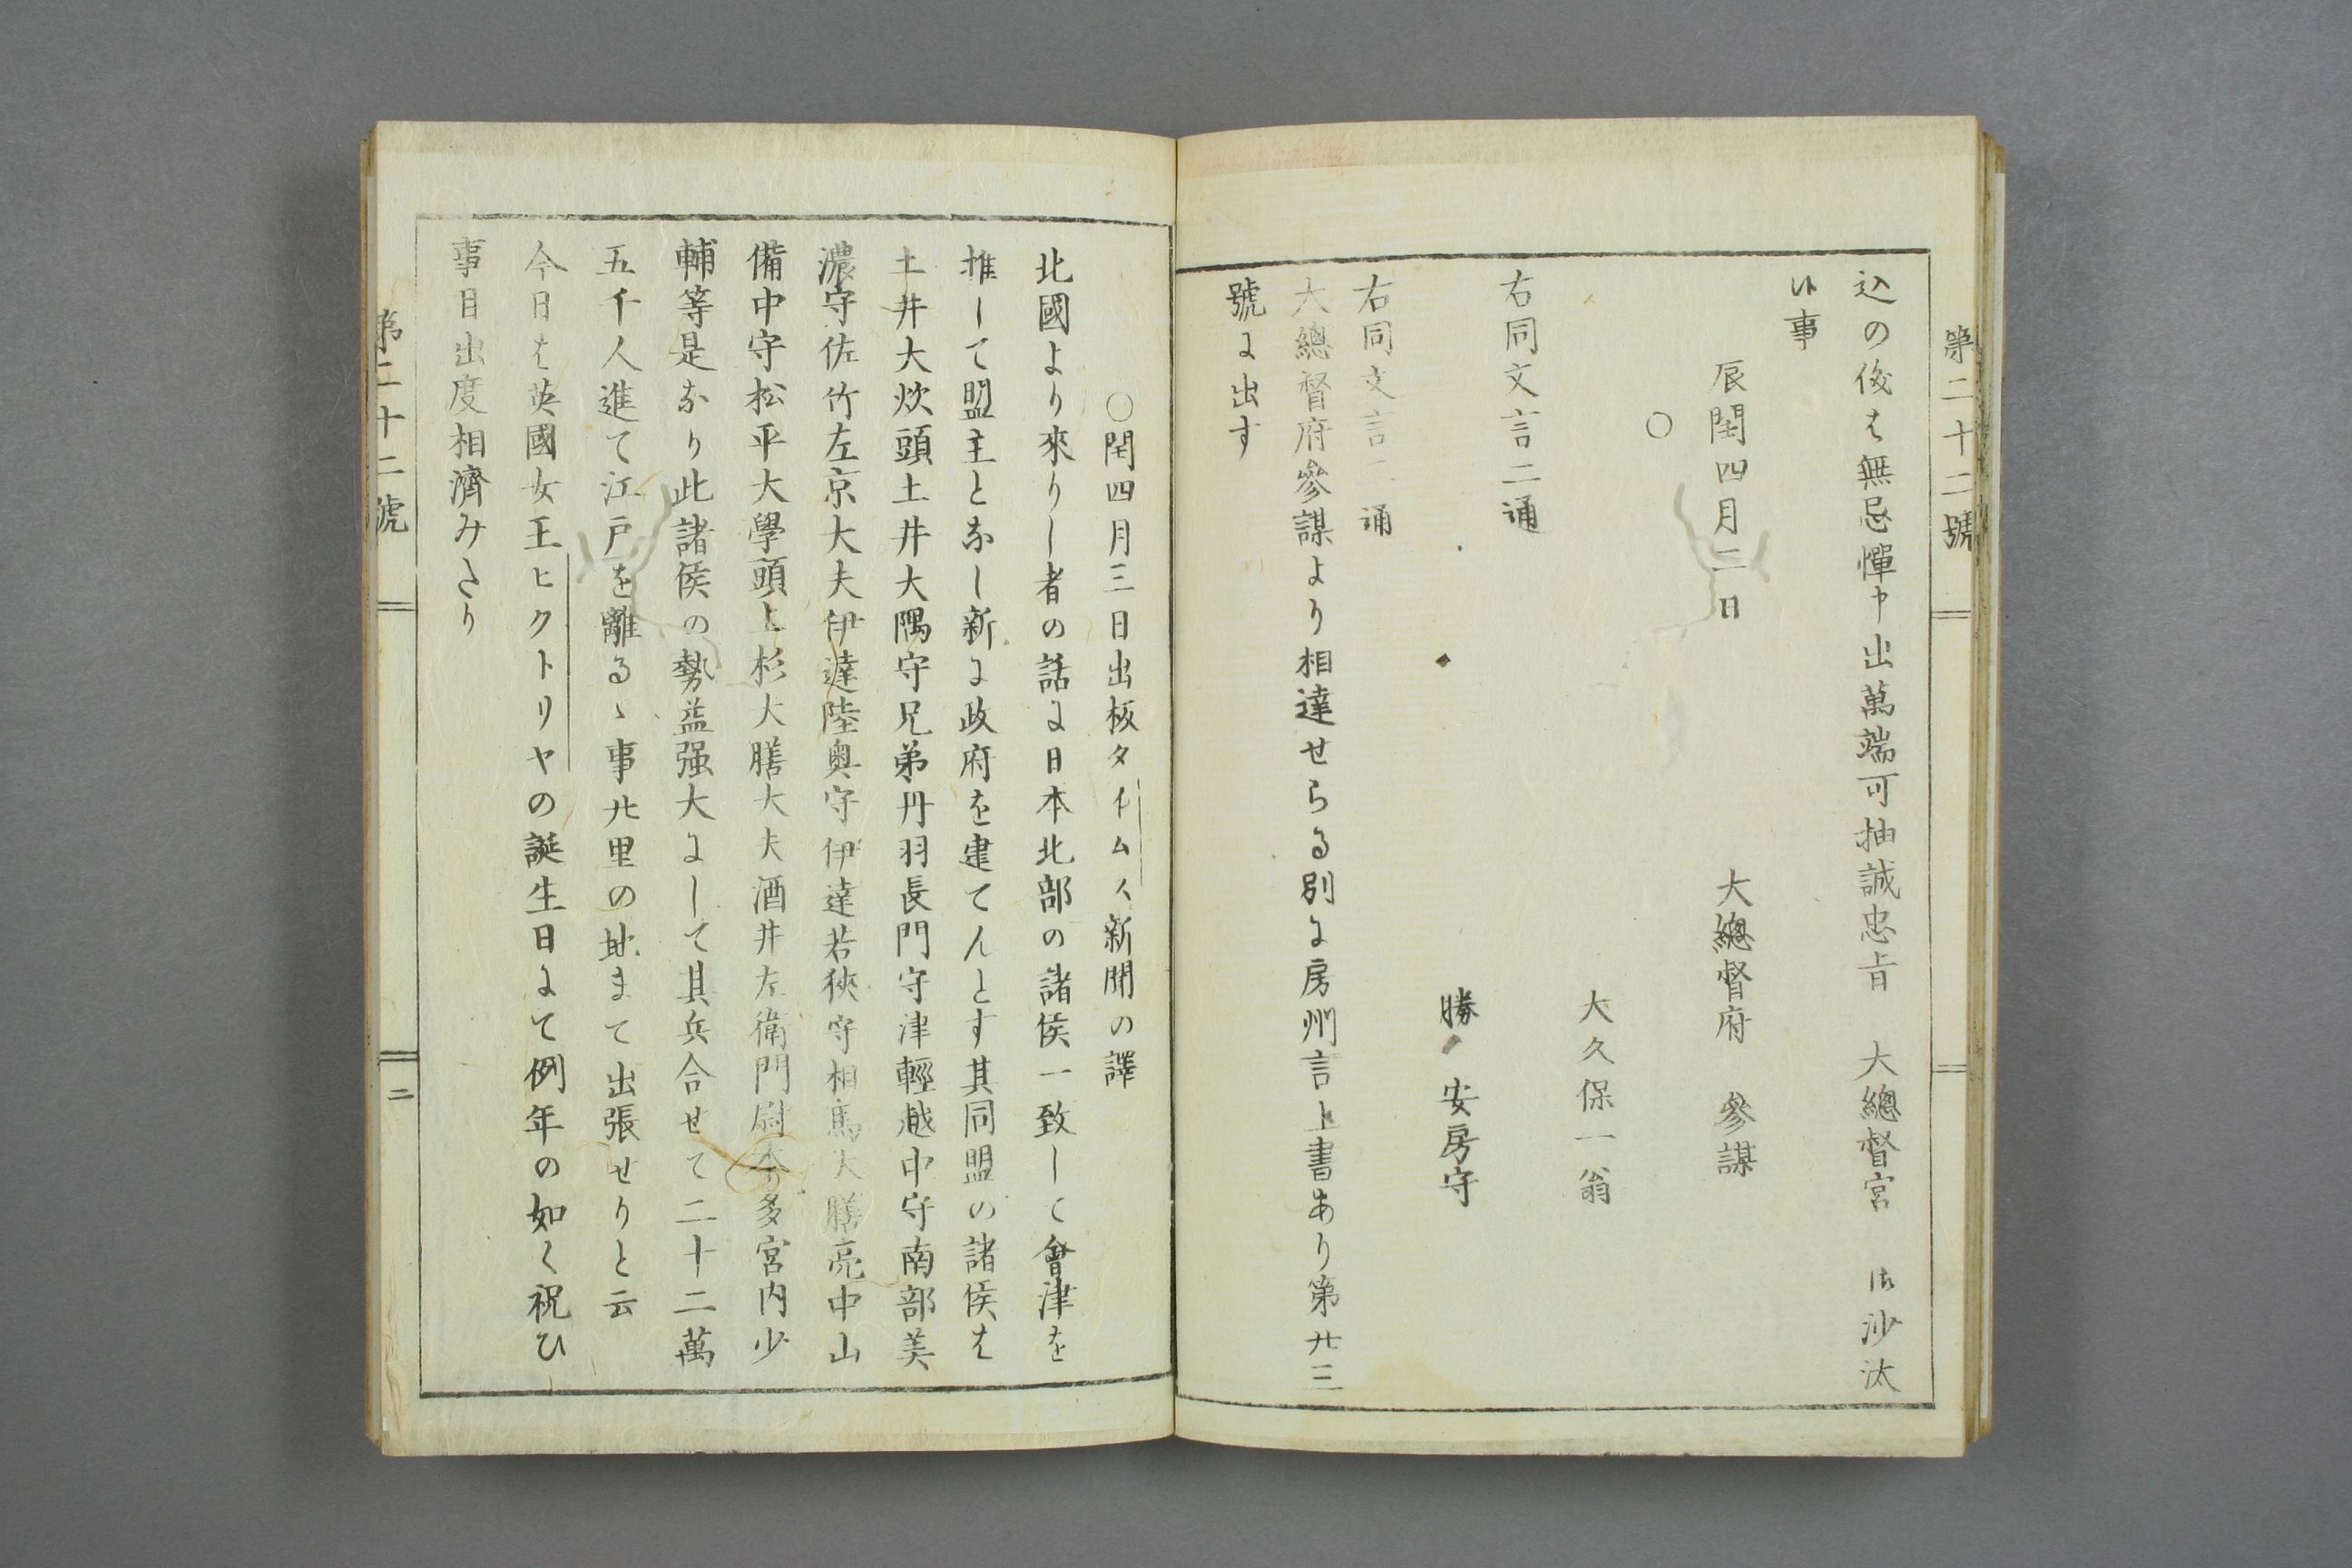 第二十二號
込の儀は無忌憚申出萬端可抽誠忠旨　大總督宮　御沙汰
候事
辰閏四月二日
大總督府　參謀
○
大久保一翁
右同文言二通
勝　安房守
右同文言一通
大總督府參謀より相達せらる別に房州言上書あり第廿三
號に出す
○閏四月三日出板タイムス新聞の譯
北國より來りし者の話に日本北部の諸侯一致して會津を
推して盟主となし新に政府を建てんとす其同盟の諸侯は
土井大炊頭土井大隅守兄弟丹羽長門守津輕越中守南部美
濃守佐竹左京大夫伊達陸奥守伊達若狹守相馬大膳亮中山
備中守松平大學頭上杉大膳大夫酒井左衛門尉本多宮内少
輔等是なり此諸侯の勢益强大にして其兵合せて二十二萬
五千人進て江戸を離るゝ事廿里の地まて出張せりと云
今日は英國女王ヒクトリヤの誕生日にて例年の如く祝ひ
事目出度相濟みたり
第二十二號
二